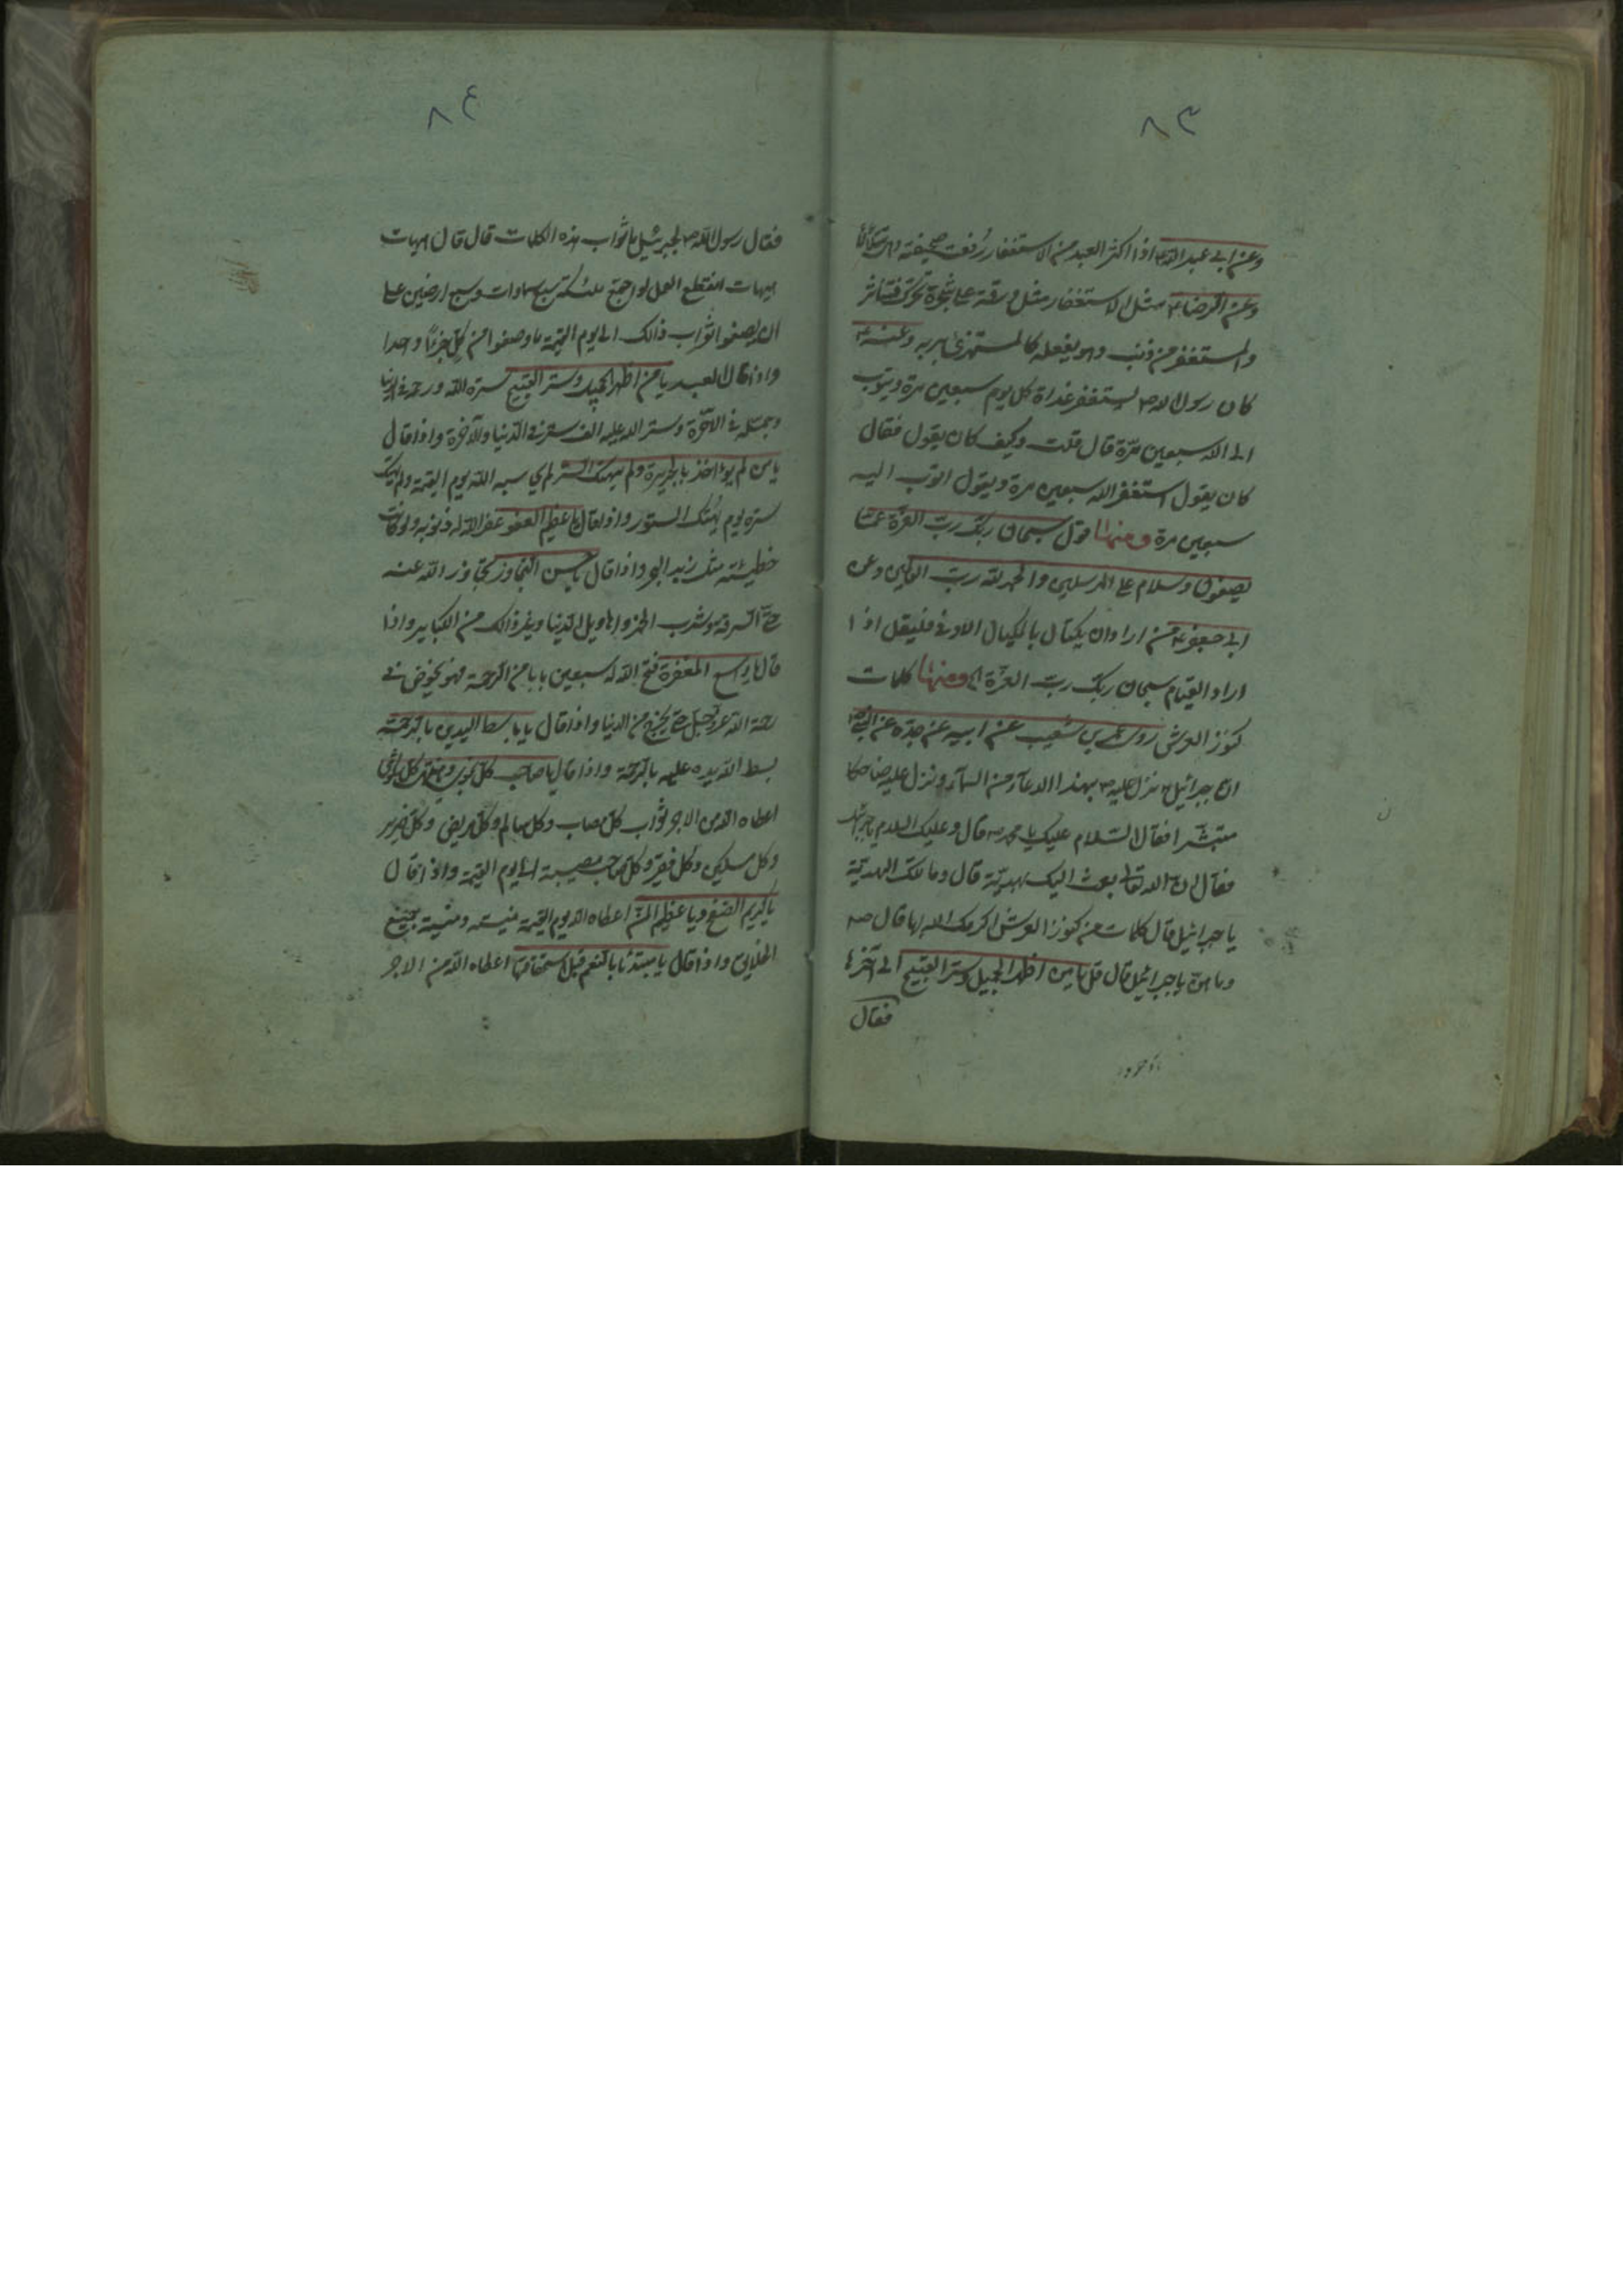 ٨٣
وعن ابي عبد الله ع اذا اكثر العبد من الاستغفار رُفعت صحيفته وهي تتلألأ
وعن الرضا ع مثل الاستغفار مثل ورقة على شجرة تحرك فتناثر
والمستغفر من ذنب وهو يفعله كالمستهزئ بربه وعنه ع
كان رسول الله ص يستغفر غداة كل يوم سبعين مرة ويتوب
الى الله سبعين مرّة قال قلت وكيف كان يقول فقال
كان يقول استغفر الله سبعين مرة ويقول اتوب اليه
سبعين مرة ومنها قول سبحان ربك ربّ العزّة عمّا
يصفون وسلام على المرسلين والحمد لله ربّ العالمين وعن
ابي جعفر ع من اراد ان يكتال بالمكيال الاوفى فليقل اذا
اراد القيام سبحان ربك ربّ العزّة الخ ومنها كلمات
كنوز العرش روى بن شعيب عن ابيه عن جدّه عن النبي ص
ان جبرائيل ع نزل عليه ص بهذا الدعاء من السماء ونزل عليه ضاحكا
مستبشرا فقال السّلام عليك يا محمد ص قال وعليك السلام يا جبرائيل
فقال ان الله تعالى بعث اليك بهديّة قال وما تلك الهديّة
يا جبرائيل قال كلمات من كنوز العرش اكرمك الله بها قال ص
وما هنّ يا جبرائيل قال قل يا من اظهر الجميل وستر القبيح الى آخرها
فقال
٨٤
فقال رسول الله ص لجبرئيل ما ثواب هذه الكلمات قال قال هيهات
هيهات انقطع العمل لو اجتمع ملئكة سبع سماوات وسبع ارضين على
ان يصفوا ثواب ذالك الى يوم القيمة ما وصفوا من كل جزءًا واحدا
واذا قال العبد يا من اظهر الجميل وستر القبيح ستره الله ورحمه في الدنيا
وجمّله في الآخرة وستر الله عليه الف ستر في الدّنيا والآخرة واذا قال
يا من لم يؤاخذ بالجريرة ولم يهتك الستر لم يحاسبه الله يوم القيمة ولم يهتك
ستره يوم يُهتك الستور واذا قال يا عظيم العفو غفر الله له ذنوبه ولو كانت
خطيئته مثل زبد البحر واذا قال يا حسن التجاوز تجاوز الله عنه
حتّى السرقة وشرب الخمر واهاويل الدّنيا وغير ذالك من الكباير واذا
قال يا واسع المغفرة فتح الله له سبعين بابا من الرحمة فهو يخوض في
رحمة الله عزّ وجل حتى يخرج من الدنيا واذا قال يا باسط اليدين بالرّحمة
بسط الله يده عليه بالرّحمة واذا قال يا صاحب كلّ نجوى ومنتهى كل شكوى
اعطاه الله من الاجر ثواب كلّ مصاب وكل سالم وكلّ مريض وكلّ ضرير
وكل مسكين وكل فقير وكل صاحب مصيبة الى يوم القيمة واذا قال
يا كريم الصّفح ويا عظيم المنّ اعطاه الله يوم القيمة منيته ومنية جميع
الخلايق واذا قال يا مبتدئا بالنّعم قبل استحقاقها اعطاه الله من الاجر